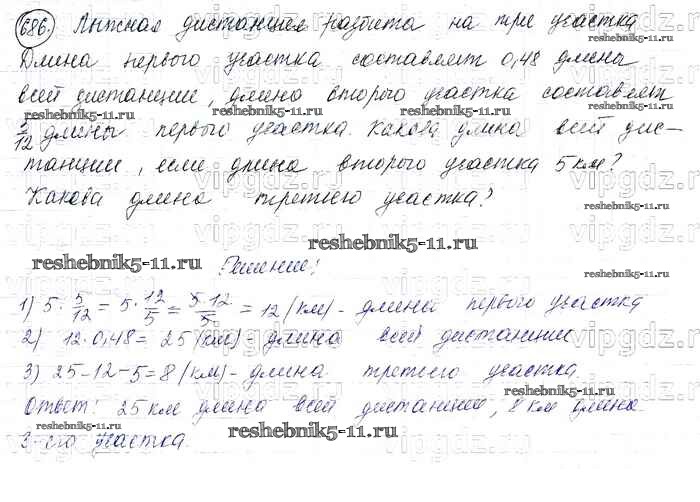 686. Лыжная дистанция разбита на три участка
Длина первого участка составляет 0,48 длины
всей дистанции, длина второго участка составляет
5/12 длины первого участка. Какова длина всей дис-
танции, если длина второго участка 5 км?
Какова длина третьего участка?
Решение:
1) 5 · 5/12 = 5 · 12/5 = 5·12/5 = 12 (км) - длина первого участка
2) 12 · 0,48 = 25 (км) - длина всей дистанции
3) 25 - 12 - 5 = 8 (км) - длина третьего участка
Ответ: 25 км длина всей дистанции, 8 км длина
3-его участка.
reshebnik5-11.ru
vipgdz.ru